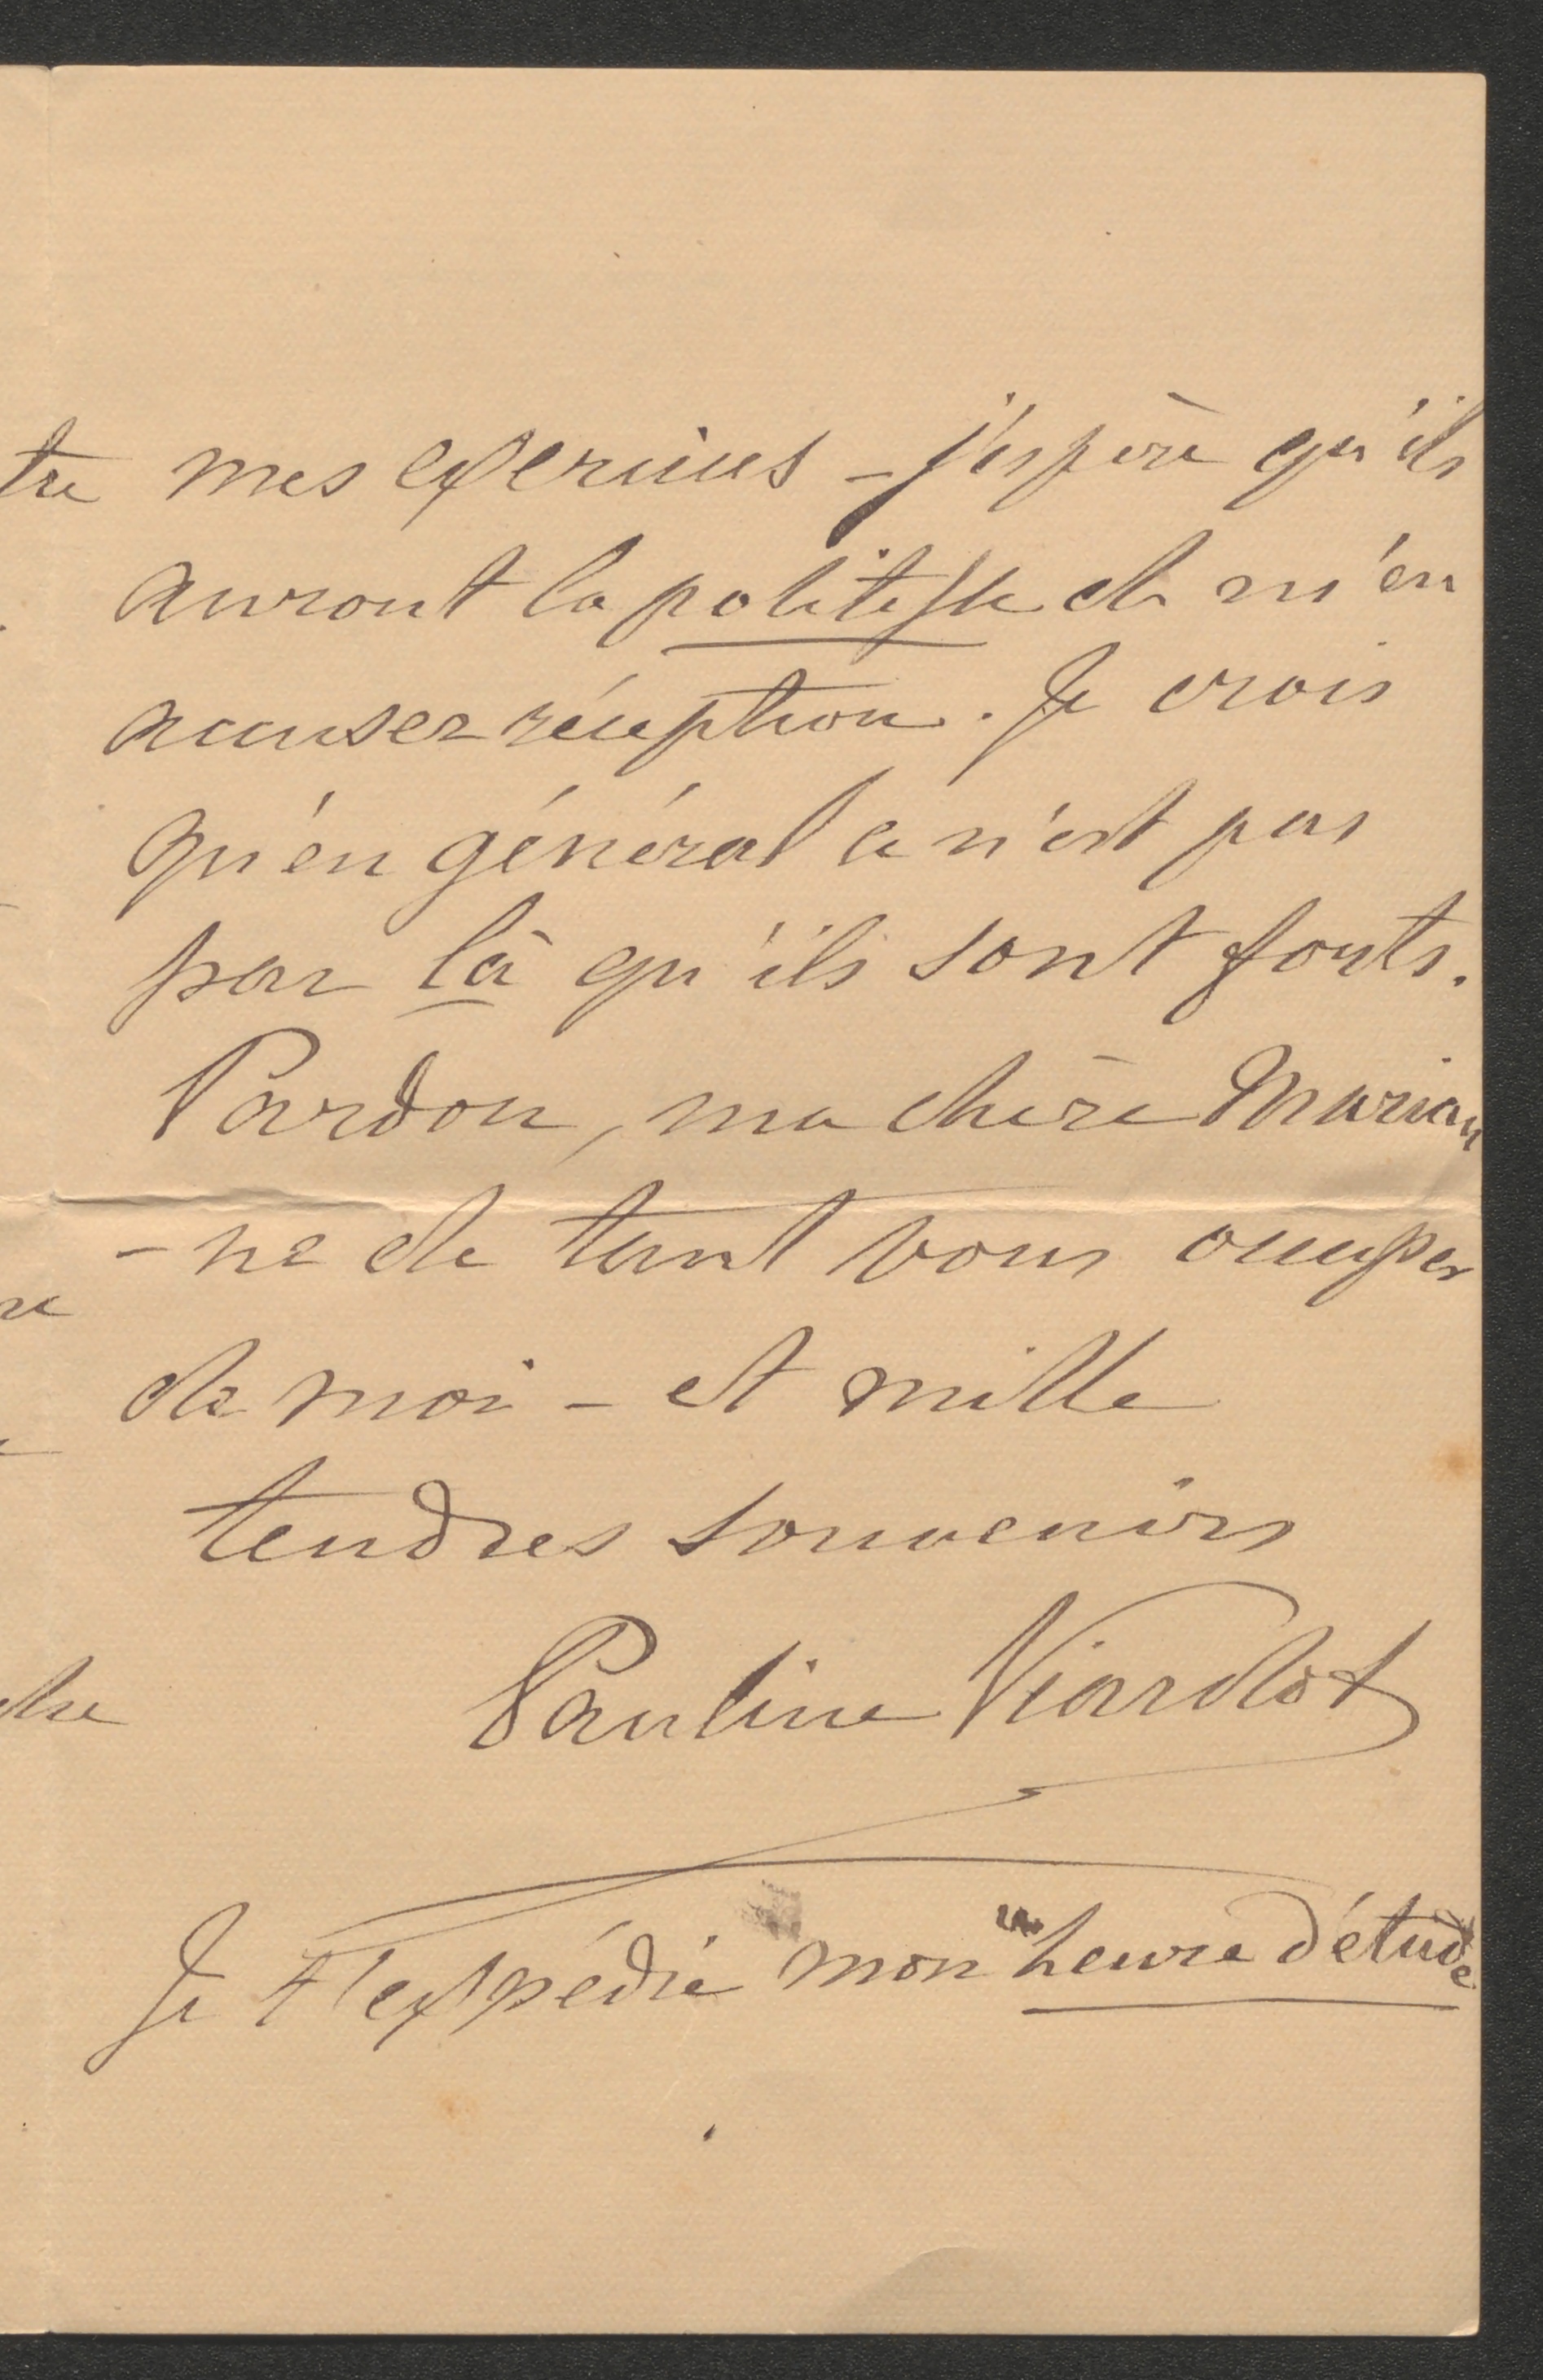 tre mes exercices – j'espère qu'ils
auront la politesse de m'en
accuser réception. Je crois
qu'en général ce n'est pas
par là qu'ils sont forts.
Pardon, ma chère Marian
-ne de tant vous occuper
de moi – et mille
tendres souvenirs
Pauline Viardot
Je t'expédie mon "heure d'étude